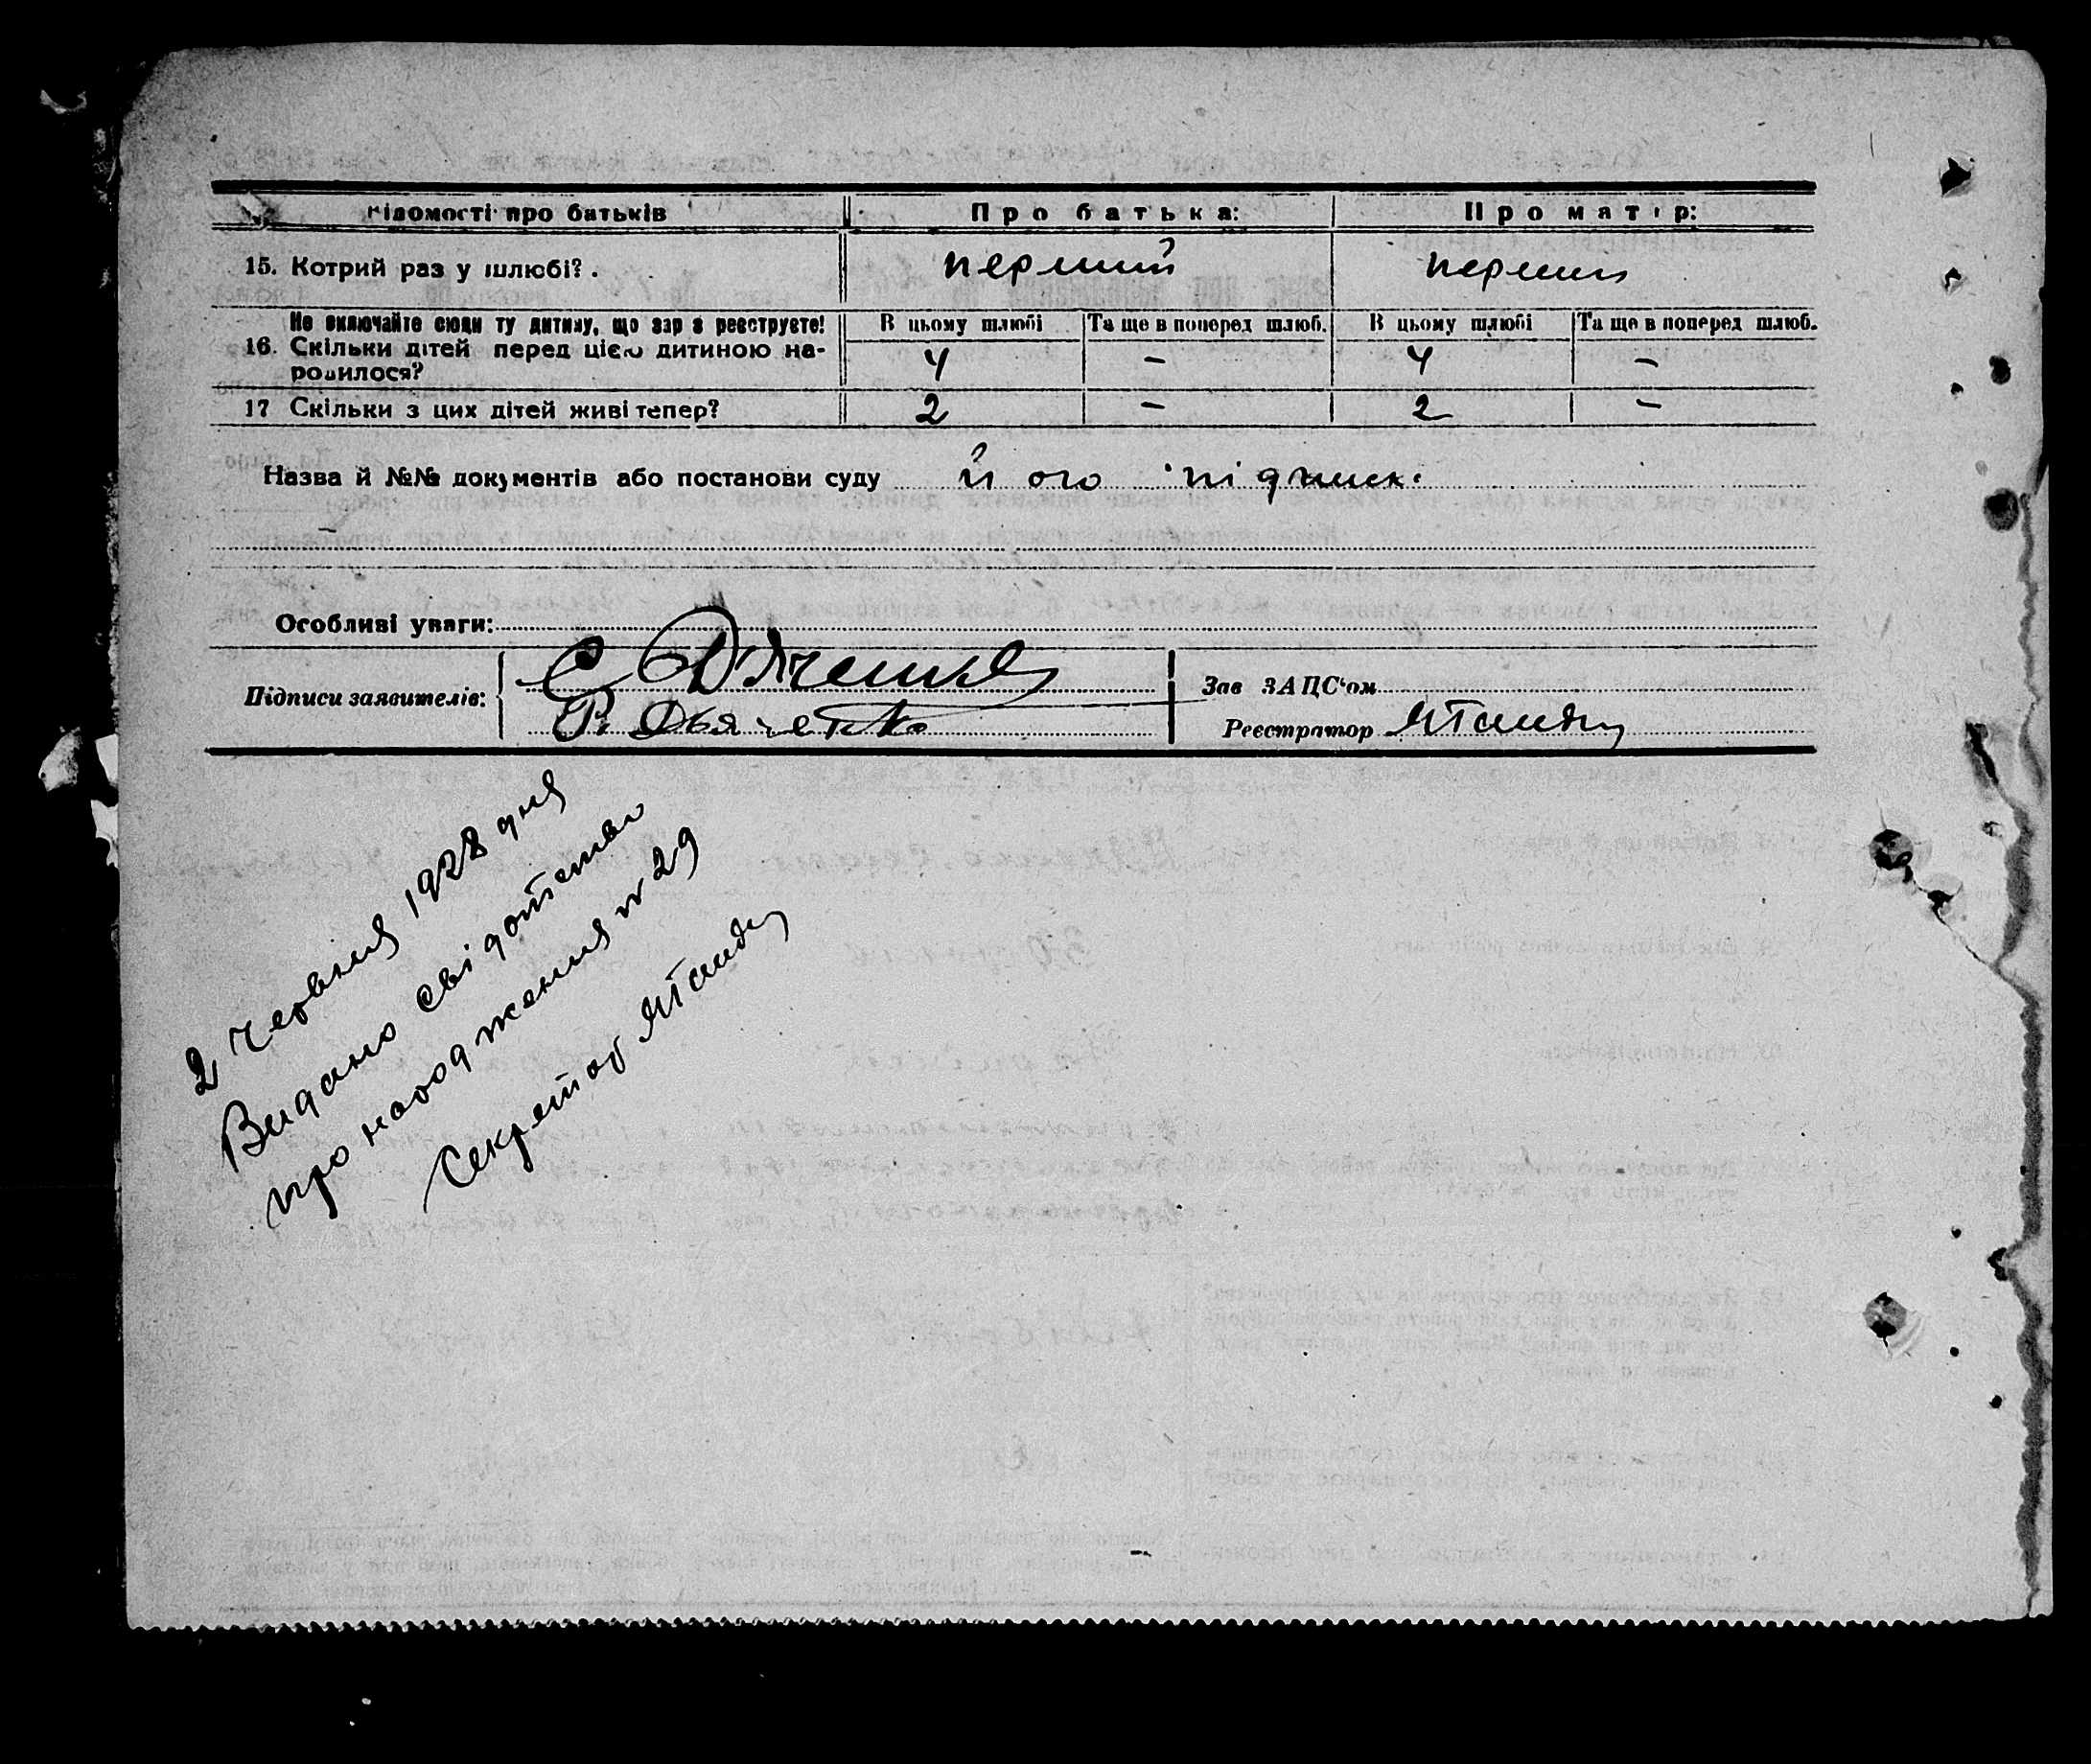 Відомості про батьків Про батька: Про матір:
15. Котрий раз у шлюбі? . перший перший
Не включайте сюди ту дитину, що зараз реєструєте! В цьому шлюбі Та ще в поперед шлюб. В цьому шлюбі Та ще в поперед шлюб.
16. Скільки дітей перед цією дитиною на-
родилося? 4 – 4 –
17 Скільки з цих дітей живі тепер? 2 – 2 –
Назва й №№ документів або постанови суду його підписк.
Особливі уваги:
Підписи заявителів: С Дяченко
Р. Дьяченко
Зав ЗАПС'ом
Реєстратор
2 червня 1928 дня
Видано свідотство
про народження № 29
Секретар